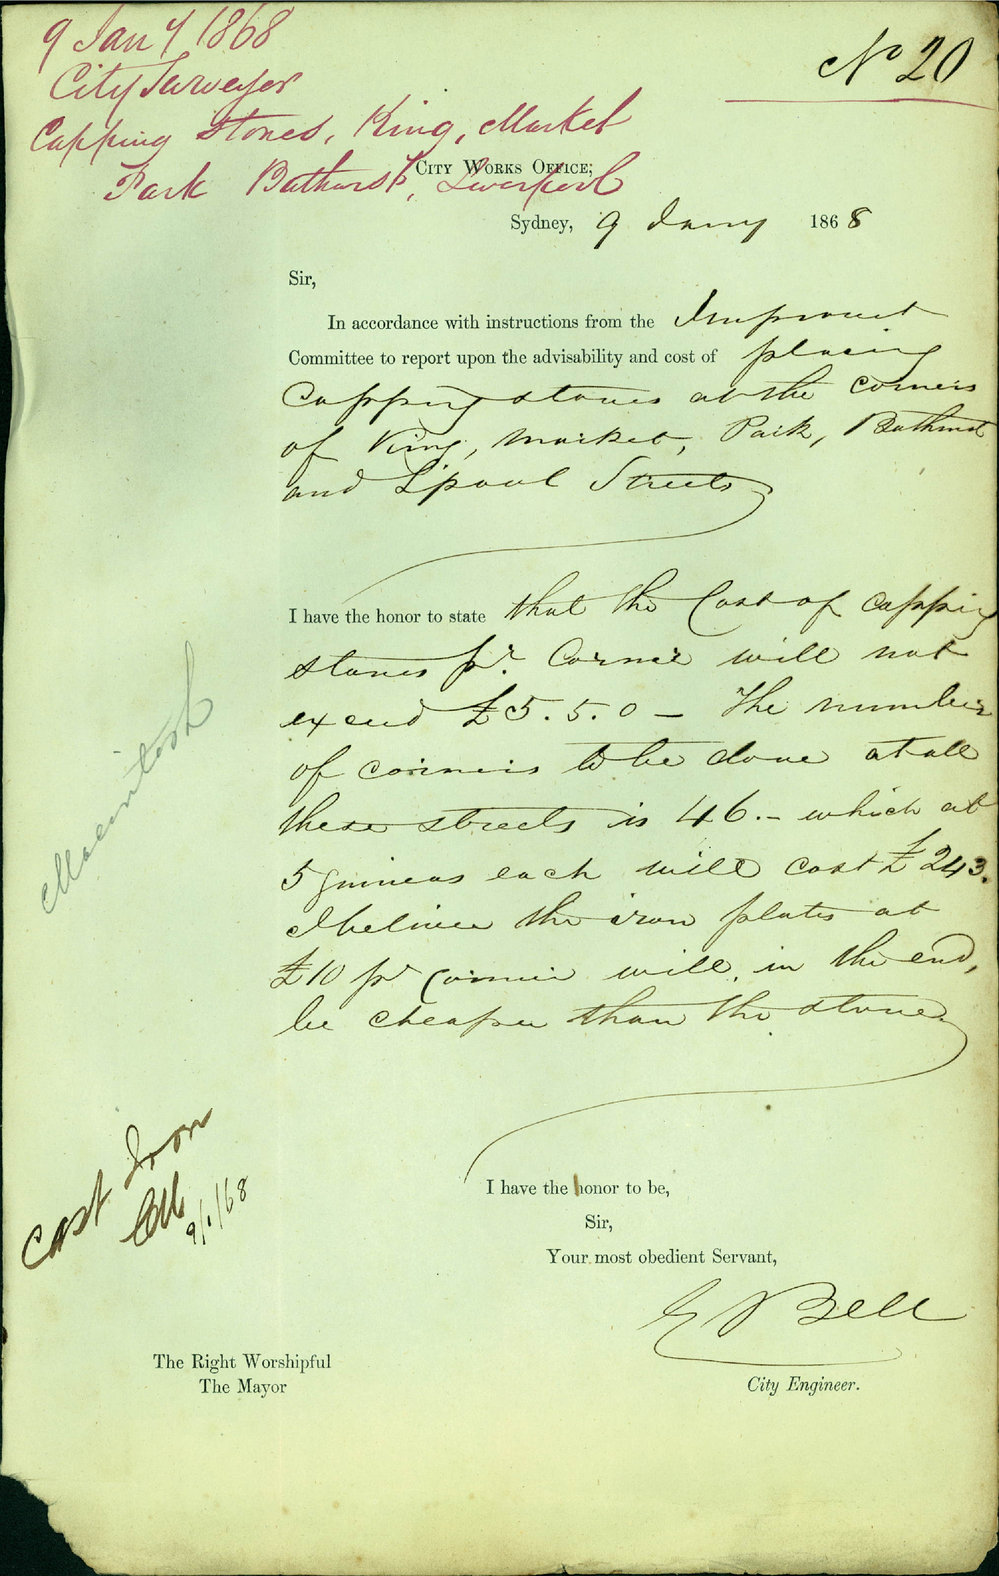 9 Jany 1868
City Surveyor
Capping Stones, King, Market
Park Bathurst, Liverpool
No 20
City Works Office;
Sydney, 9 Jany 1868
Sir,
In accordance with instructions from the Improvemt
Committee to report upon the advisability and cost of placing
Capping stones at the corners
of King, Market, Park, Bathurst
and L'pool Streets
I have the honor to state that the Cost of capping
stones pr. Corner will not
exceed £5.5.0 – The number
of corners to be done at all
these streets is 46. – which at
5 guineas each will cost £243.
I believe the iron plates at
£10 pr corner will, in the end,
be cheaper than the stone.
Macintosh
Cast Iron
9/1/68
I have the honor to be,
Sir,
Your most obedient Servant,
E Bell
City Engineer.
The Right Worshipful
The Mayor